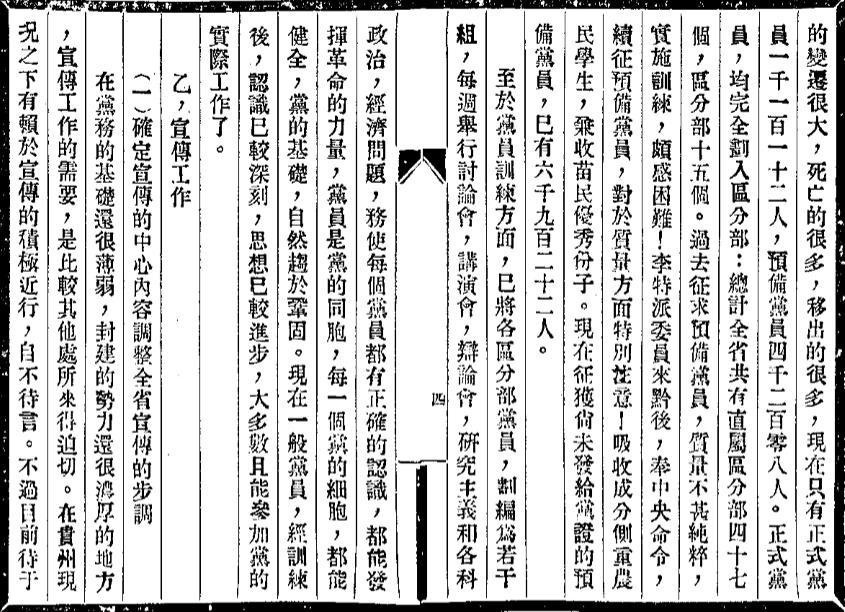 的變遷很大，死亡的很多，移出的很多，現在只有正式黨
員一千一百一十二人，預備黨員四千二百零八人。正式黨
員，均完全劃入區分部：總計全省共有直屬區分部四十七
個，區分部十五個。過去征求預備黨員，質量不甚純粹，
實施訓練，頗感困難！李特派委員來黔後，奉中央命令，
續征預備黨員，對於質量方面特別注意！吸收成分側重農
民學生，兼收苗民優秀份子。現在征獲尙未發給黨證的預
備黨員，已有六千九百二十二人。
至於黨員訓練方面，已將各區分部黨員，劃編爲若干
組，每週舉行討論會，講演會，辯論會，研究主義和各科
四
政治，經濟問題，務使每個黨員都有正確的認識，都能發
揮革命的力量，黨員是黨的同胞，每一個黨的細胞，都能
健全，黨的基礎，自然趨於鞏固。現在一般黨員，經訓練
後，認識已較深刻，思想已較進步，大多數且能參加黨的
實際工作了。
乙，宣傳工作
（一）確定宣傳的中心內容調整全省宣傳的步調
在黨務的基礎還很薄弱，封建的勢力還很濃厚的地方
，宣傳工作的需要，是比較其他處所來得迫切。在貴州現
況之下有賴於宣傳的積極近行，自不待言。不過目前待于